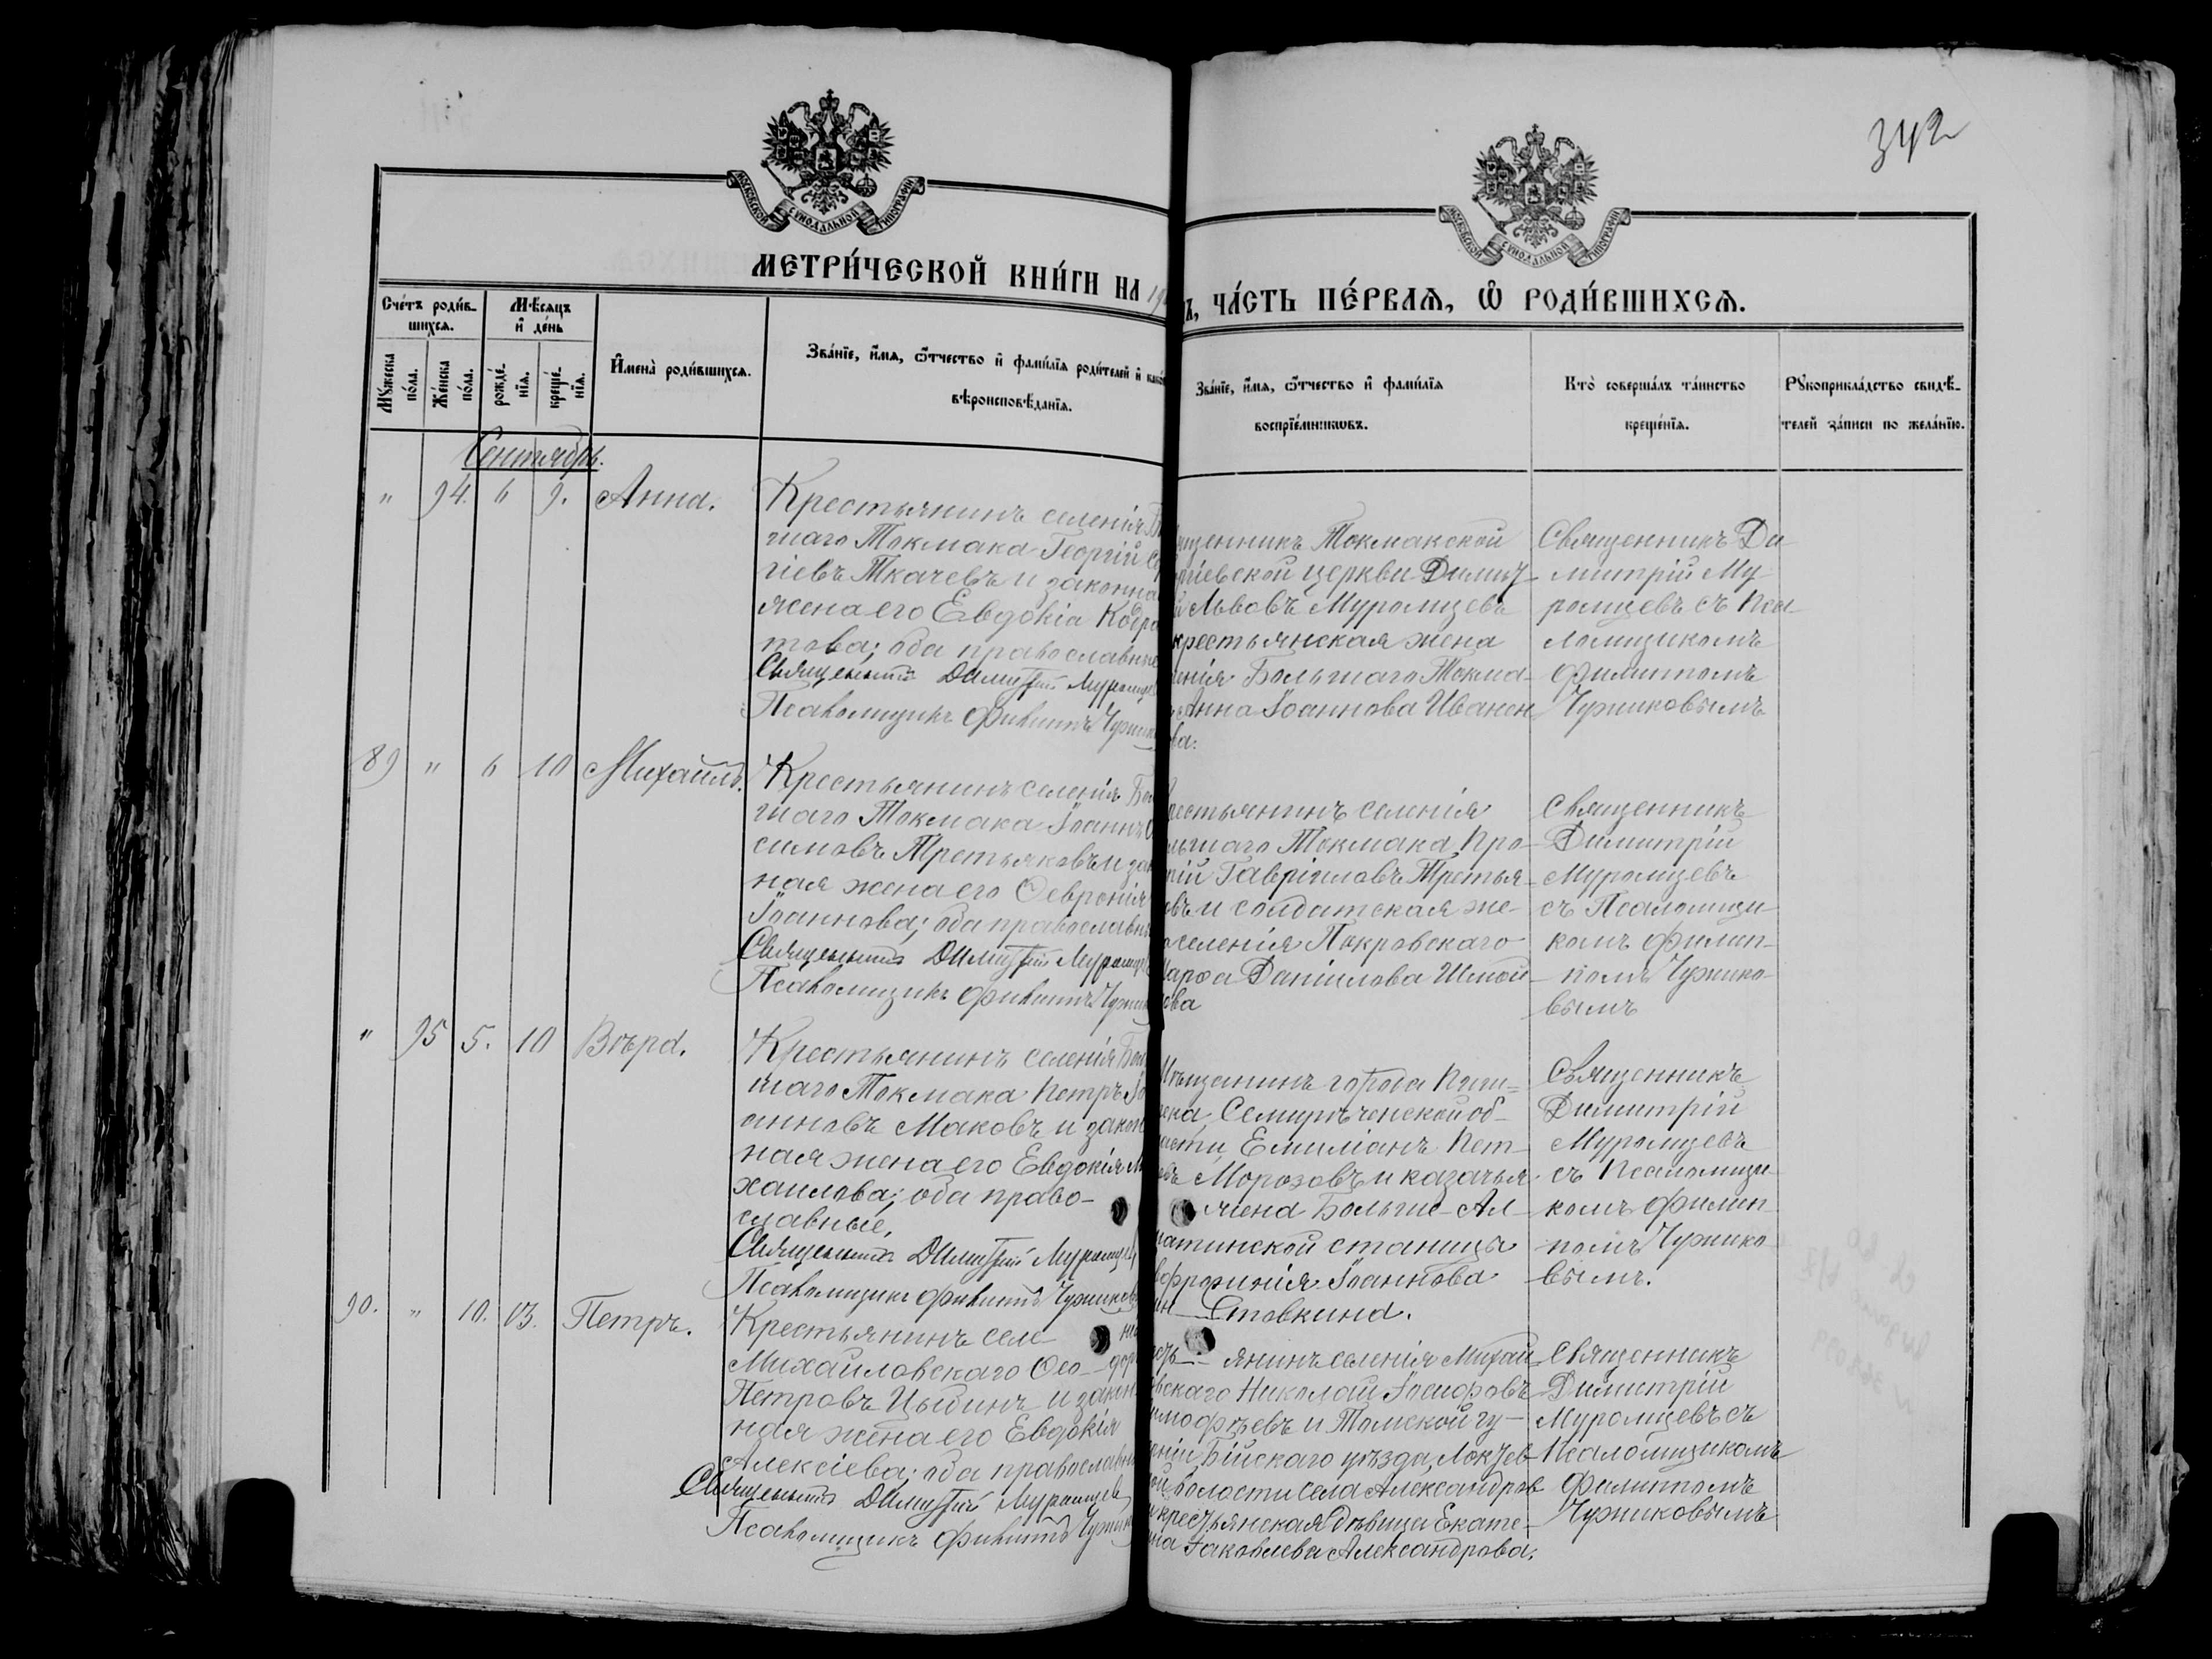 342
МОСКОВСКОЙ СѴНОДАЛЬНОЙ ТИПОГРАФІИ
МОСКОВСКОЙ СѴНОДАЛЬНОЙ ТИПОГРАФІИ
МЕТРИ́ЧЕСКОЙ КНИ́ГИ НА 19
Ъ, ЧА́СТЬ ПЕ́РВАѦ, Ѡ҆ РОДИ́ВШИХСѦ.
Сче́тъ роди́в-
шихсѧ.
Мѣ́сѧцъ
и҆ де́нь
Мꙋ́жеска
по́ла.
Же́нска
по́ла.
рожде́-
нїѧ.
креще́-
нїѧ.
И҆мена̀ роди́вшихсѧ.
Зва́нїе, и҆́мѧ, ѻ҆́тчество и҆ фами́лїѧ роди́телей и҆ како́
вѣроисповѣ́данїѧ.
Зва́нїе, и҆́мѧ, ѻ҆́тчество и҆ фами́лїѧ
воспрїе́мникѡвъ.
Кто̀ соверша́лъ та́инство
креще́нїѧ.
Рꙋкоприкла́дство свидѣ́-
телей за́писи по жела́нїю.
Сентябрь.
" 94. 6 9. Анна.
Крестьянинъ селенія Бо
шаго Токмака Георгій Се
гіевъ Ткачевъ и законна
жена его Евдокіа Кодра
това; оба православные
Священникъ Димитрій Муромцев
Псаломщикъ Филиппъ Чужик
ященникъ Токмакской
ргіевской церкви Димит-
й Львовъ Муромцевъ
крестьянская жена
ленія Большаго Токма-
Анна Іоаннова Иванен
ова.
Священникъ Ди
митрій Му-
ромцевъ съ Пса-
ломщикомъ
Филиппомъ
Чужиковымъ
89 " 6 10 Михаилъ.
Крестьянинъ селенія Бол
шаго Токмака Іоаннъ О
симовъ Третьяковъ и зак
ная жена его Ѳевронія
Іоаннова; оба православн
Священникъ Димитрій Муромце
Псаломщикъ Филиппъ Чужик
рестьянинъ селенія
льшаго Токмака Про-
пій Гавріиловъ Третья-
овъ и солдатская же-
селенія Покровскаго
Марѳа Даніилова Шмой-
ова
Священникъ
Димитрій
Муромцевъ
съ Псаломщи-
комъ Филип-
помъ Чужико-
вымъ
" 95 5. 10 Вѣра.
Крестьянинъ селенія Бол
шаго Токмака Петръ Іо
анновъ Маковъ и закон
ная жена его Евдокія М
хаилова; оба право-
славные,
Священникъ Димитрій Муромцев
Псаломщикъ Филиппъ Чужиков
Мѣщанинъ города Пиш-
пека, Семирѣченской об-
ласти, Емиліанъ Пет-
овъ Морозовъ и казачья
жена Больше-Ал-
матинской станицы
вфросинія Іоаннова
Ставкина.
Священникъ
Димитрій
Муромцевъ
съ Псаломщи-
комъ Филип-
помъ Чужико
вымъ.
90. " 10. 13. Петръ.
Крестьянинъ селе нія
Михайловскаго Ѳео-дор
Петровъ Цыбинъ и закон
ная жена его Евдокія
Алексіева; оба православн
Священникъ Димитрій Муромцев
Псаломщикъ Филиппъ Чужик
янинъ селенія Михаи
овскаго Николай Іосифовъ
имофѣевъ и Томской гу-
рніи, Бійскаго уѣзда, Локтев-
ой волости села Александров
крестьянская дѣвица Екате-
ина Іаковлева Александрова.
Священникъ
Димитрій
Муромцевъ съ
Псаломщикомъ
Филиппомъ
Чужиковымъ